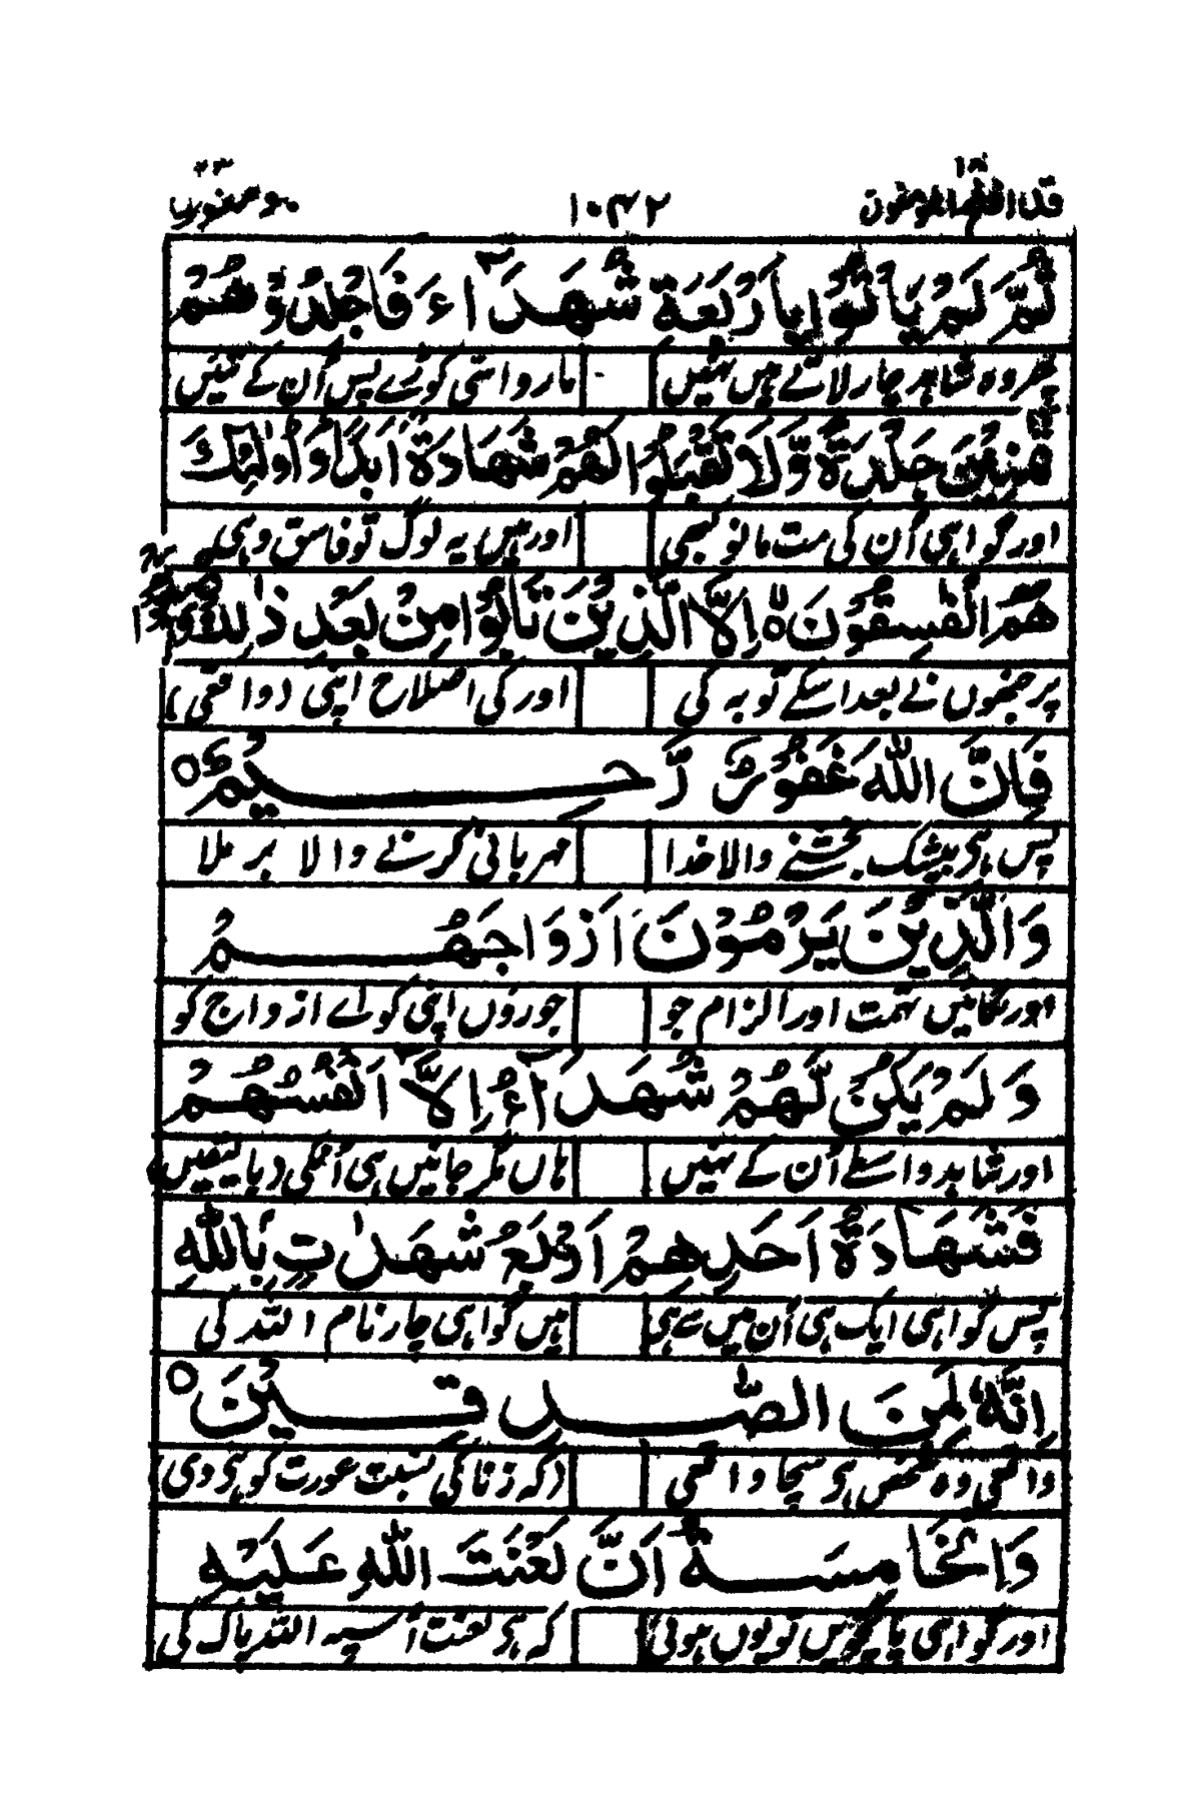 ۱۸ ۲۳
قد افلح المؤمنون ۱۰۴۲
ثُمَّ لَمْ يَأْتُوْا بِأَرْبَعَةِ شُهَدَآءَ فَاجْلِدُوْهُمْ
پھر وہ شاہد چار لاتے ہیں نہیں مارو اسّی کوڑے پس اُن کے تئیں
ثَمٰنِيْنَ جَلْدَةً وَّلَا تَقْبَلُوْا لَهُمْ شَهَادَةً اَبَدًا وَاُولٰٓئِكَ
اور گواہی اُن کی مت مانو کبھی اور ہیں یہ لوگ تو فاسق وہی
هُمُ الْفٰسِقُوْنَ اِلَّا الَّذِيْنَ تَابُوْا مِنْۢ بَعْدِ ذٰلِكَ
پر جنھوں نے بعد اسکے توبہ کی اور کی اصلاح اپنی (واقعی)
فَاِنَّ اللّٰهَ غَفُوْرٌ رَّحِيْمٌ
پس ہے بیشک بخشنے والا خدا مہربانی کرنے والا بر ملا
وَالَّذِيْنَ يَرْمُوْنَ اَزْوَاجَهُمْ
اور لگائیں تہمت اور الزام جو جوروں اپنی کو اے ازواج کو
وَلَمْ يَكُنْ لَّهُمْ شُهَدَآءُ اِلَّآ اَنْفُسُهُمْ
اور شاہد واسطے اُن کے نہیں ہاں مگر جانیں ہی اُنکی
فَشَهَادَةُ اَحَدِهِمْ اَرْبَعُ شَهٰدٰتٍ بِاللّٰهِ
پس گواہی ایک ہی اُن میں سے ہی ہیں گواہی چار نام اللہ کی
اِنَّهٗ لَمِنَ الصّٰدِقِيْنَ
واقعی وہ شخص ہے سچا واقعی (کہ زنا کی نسبت عورت کو ہے دی
وَالْخَامِسَةُ اَنَّ لَعْنَتَ اللّٰهِ عَلَيْهِ
اور گواہی پانچویں تو یوں ہوئی کہ ہے لعنت اُسپہ اللہ پاک کی